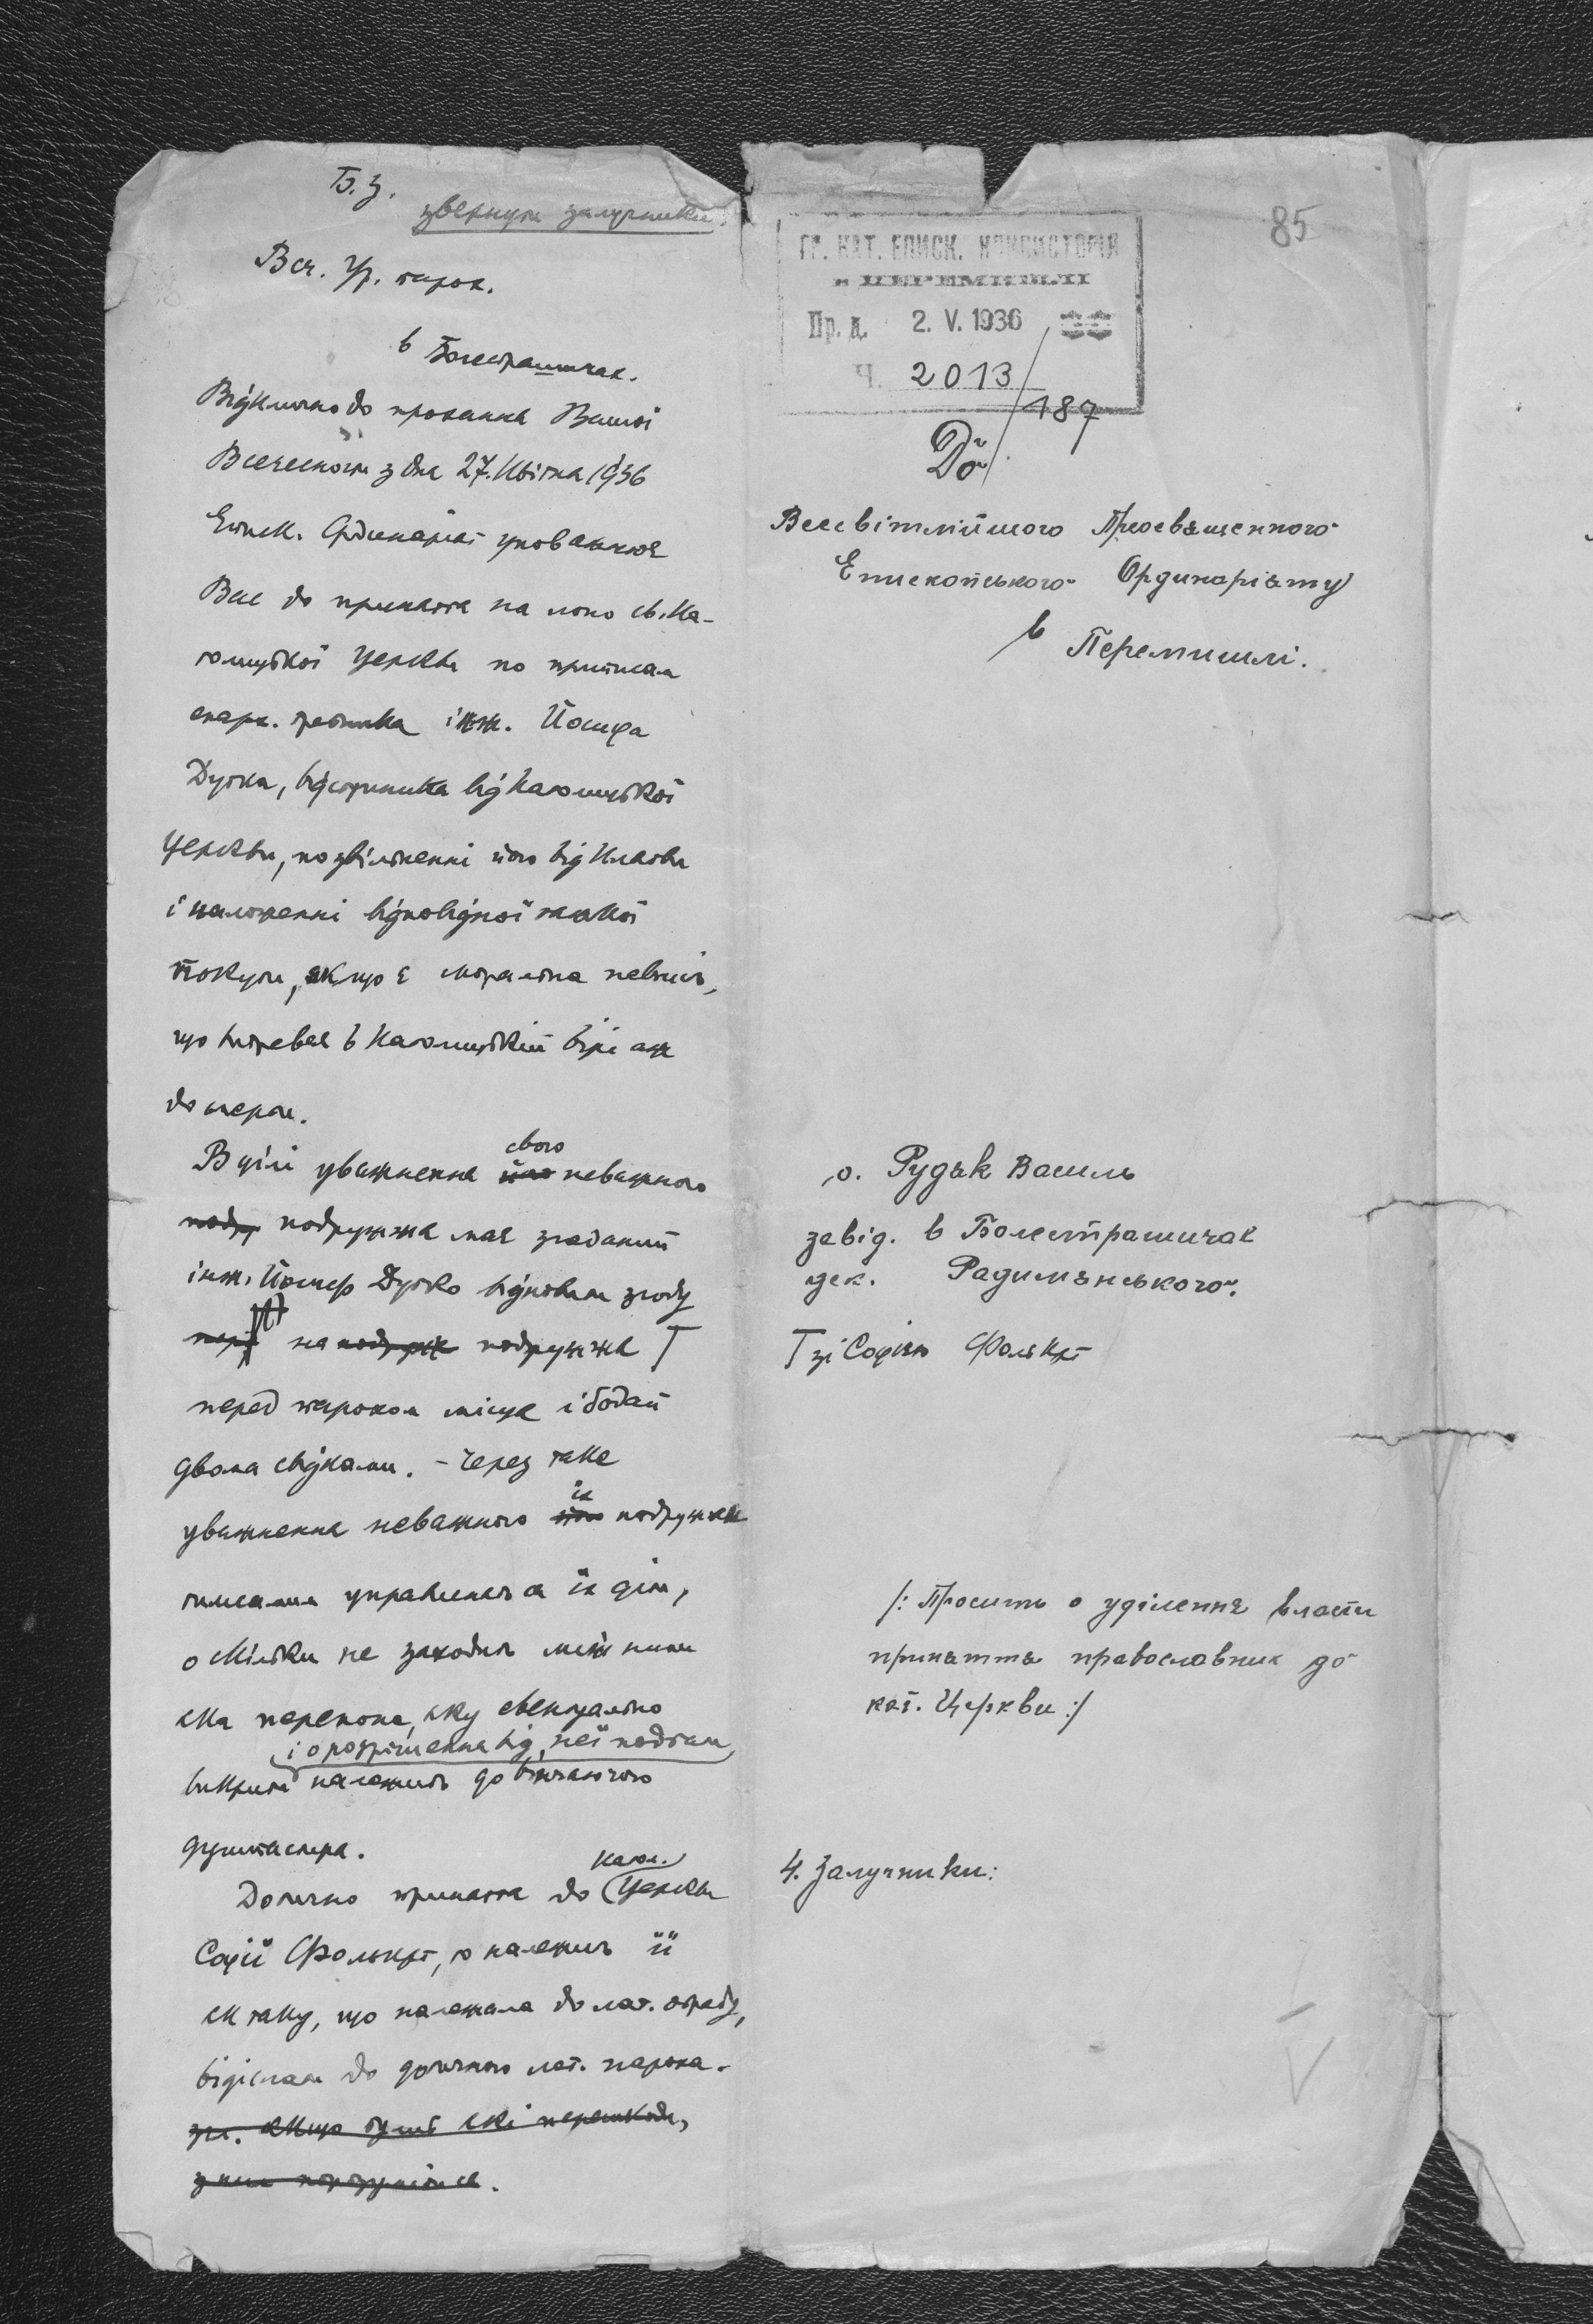 Б. з.
звернути залучники.
Всч. Ур. парох.
в Болестрашичах.
Відклично до прохання Вашої
Всечесности з дня 27. Квітня 1936
Еписк. Ординаріят уповажнює
Вас до принаття на лоно св. Ка-
толицької Церкви по приписам
епарх. требника інж. Йосифа
Дутка, відступника від Католицької
Церкви, по звільненні його від Клятви
і наложенні відповідної тяжкої
покути, якщо є моральна певність,
що витреває в Католицькій вірі аж
до смерти.
В ціли уважнення його свого неважного
подру подружжа має згаданий
інж. Йосиф Дутко відновити згоду
на подруж подружжа Т
перед парохом місця і бодай
двома свідками. – Через таке
уважнення неважного його їх подружжа
тимсамим управильнається їх діти,
о скільки не заходить між ними
яка перепона, яку евентуально
і о розрішення від неї подбати,
викрити належить до вінчаючого
душпастиря.
Дотично принаття до Катол. Церкви
Софії Фолькрт, то належить її
як таку, що належала до лат. обряду,
відіслати до дотичного лат. пароха.
якщо були які перешкоди,
з ним порозумітися.
ГР. КАТ. ЕПИСК. КОНСИСТОРІЯ
в ПЕРЕМИШЛІ
Пр. д. 2. V. 1936
Ч. 2013/187
85
До
Всесвітлійшого Преосвященного
Епископського Ординаріяту
в Перемишлі.
о. Рудак Василь
завід. в Болестрашичах
дек. Радимнянського.
Т зі Софією Фолькрт
/: Просить о уділення власти
принаття православних до
кат. Церкви :/
4. Залучники: